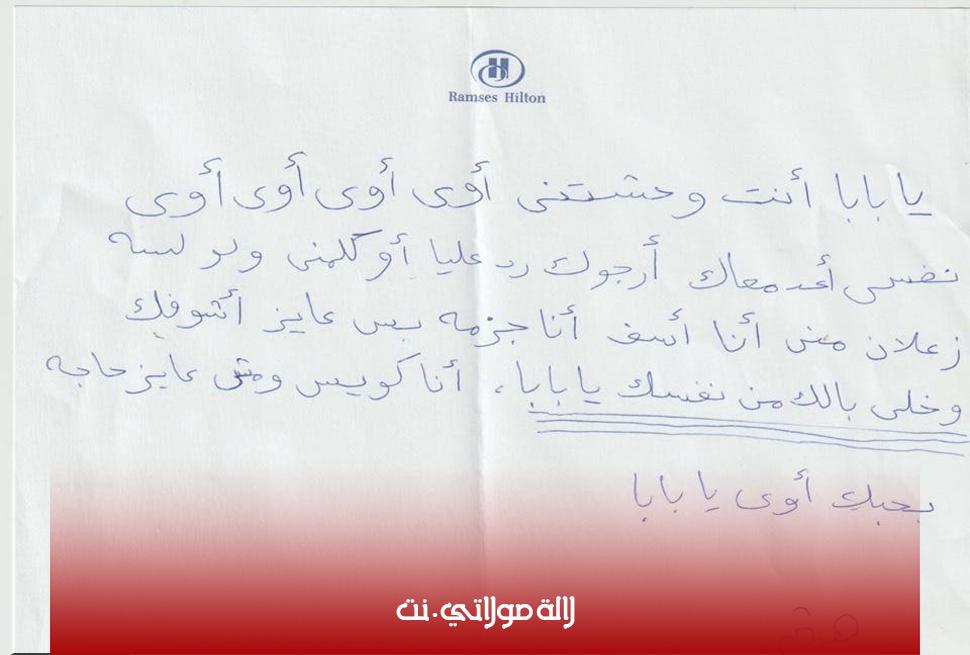 Ramses Hilton
يا بابا أنت وحشتنى أوى أوى أوى أوى
نفسى أعد معاك أرجوك رد عليا أو كلمنى ولو لسه
زعلان منى أنا أسف أنا جزمه بس عايز أشوفك
وخلى بالك من نفسك يا بابا، أنا كويس ومش عايز حاجه
بحبك أوى يا بابا
لالة مولاتي.نت